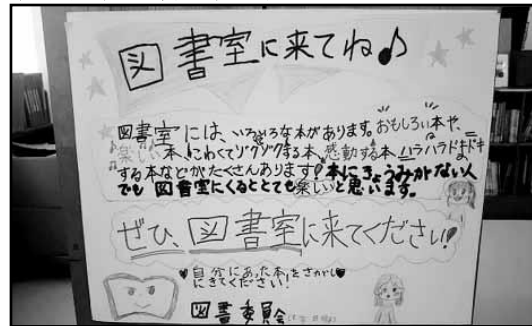 図書室に来てね♪
図書室には、いろいろな本があります。おもしろい本や、
楽しい本、こわくてゾクゾクする本、感動する本、ハラハラドキドキ
する本などがたくさんあります!本にきょうみがない人
でも図書室にくるととても楽しいと思います。
ぜひ、図書室に来てください!
♥自分にあった本をさがし♥
にきてください!
図書委員会